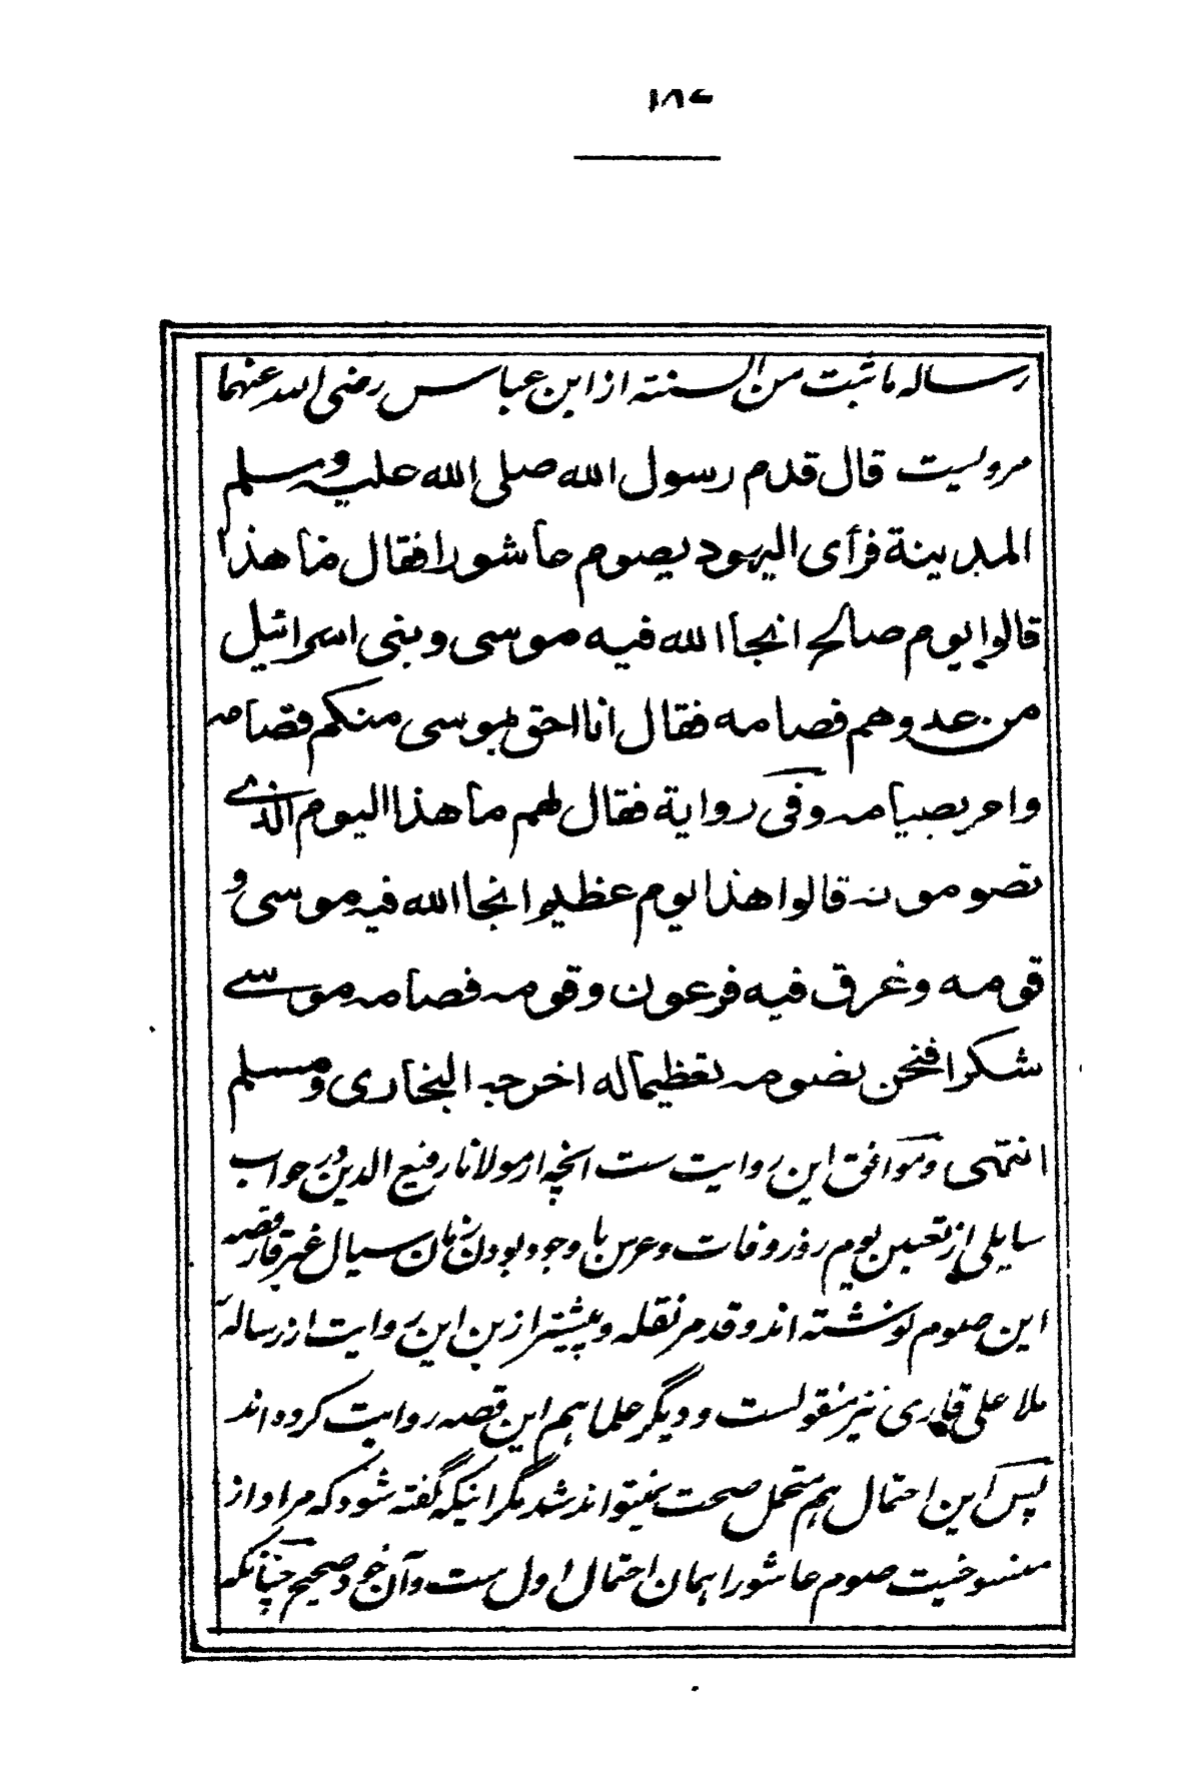 ۱۸۶
رساله ما ثبت من السنته از ابن عباس رضی الله عنهما
مرویست قال قدم رسول الله صلی الله علیه وسلم
المدینة فرأی الیهود یصوم عاشورا فقال ما هذا
قالوا یوم صالح انجا الله فیه موسی و بنی اسرائیل
من عدوهم فصامه فقال انا احق بموسی منکم فصامه
وامر بصیامه وفی روایة فقال لهم ما هذا الیوم الذی
تصومونه قالوا هذا یوم عظیم انجا الله فیه موسی و
قومه وغرق فیه فرعون وقومه فصامه موسی
شکرا فنحن نصومه تعظیما له اخرجه البخاری ومسلم
انتهی و موافق این روایت ست انچه از مولانا رفیع الدین در جواب
سایلی از تعین یوم روز وفات و عرس با وجود بودن زمان سیال غیر قار قصه
این صوم نوشته اند و قد مر نقله و پیشتر ازین این روایت از رساله
ملا علی قاری نیز منقولست و دیگر علما هم این قصه روایت کرده اند
پس این احتمال هم متحمل صحت نمیتواند شد مگر اینکه گفته شود که مراد از
منسوخیت صوم عاشورا همان احتمال اول ست و آن خود صحیح چنانکه